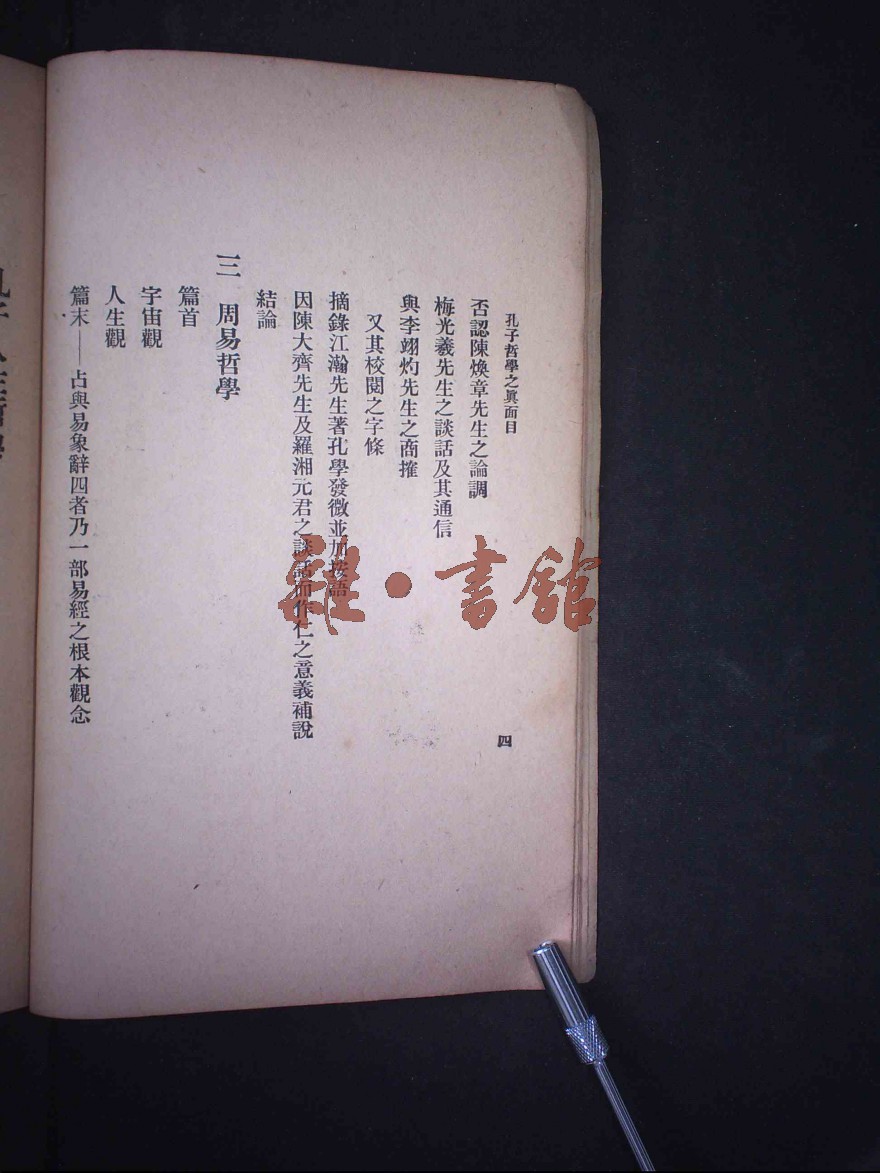 孔子哲學之眞面目
四
否認陳煥章先生之論調
梅光羲先生之談話及其通信
與李翊灼先生之商搉
又其校閱之字條
摘錄江瀚先生著孔學發微並加按語
因陳大齊先生及羅湘元君之談話而作仁之意義補說
結論
三 周易哲學
篇首
宇宙觀
人生觀
篇末——占與易象辭四者乃一部易經之根本觀念
雜·書館